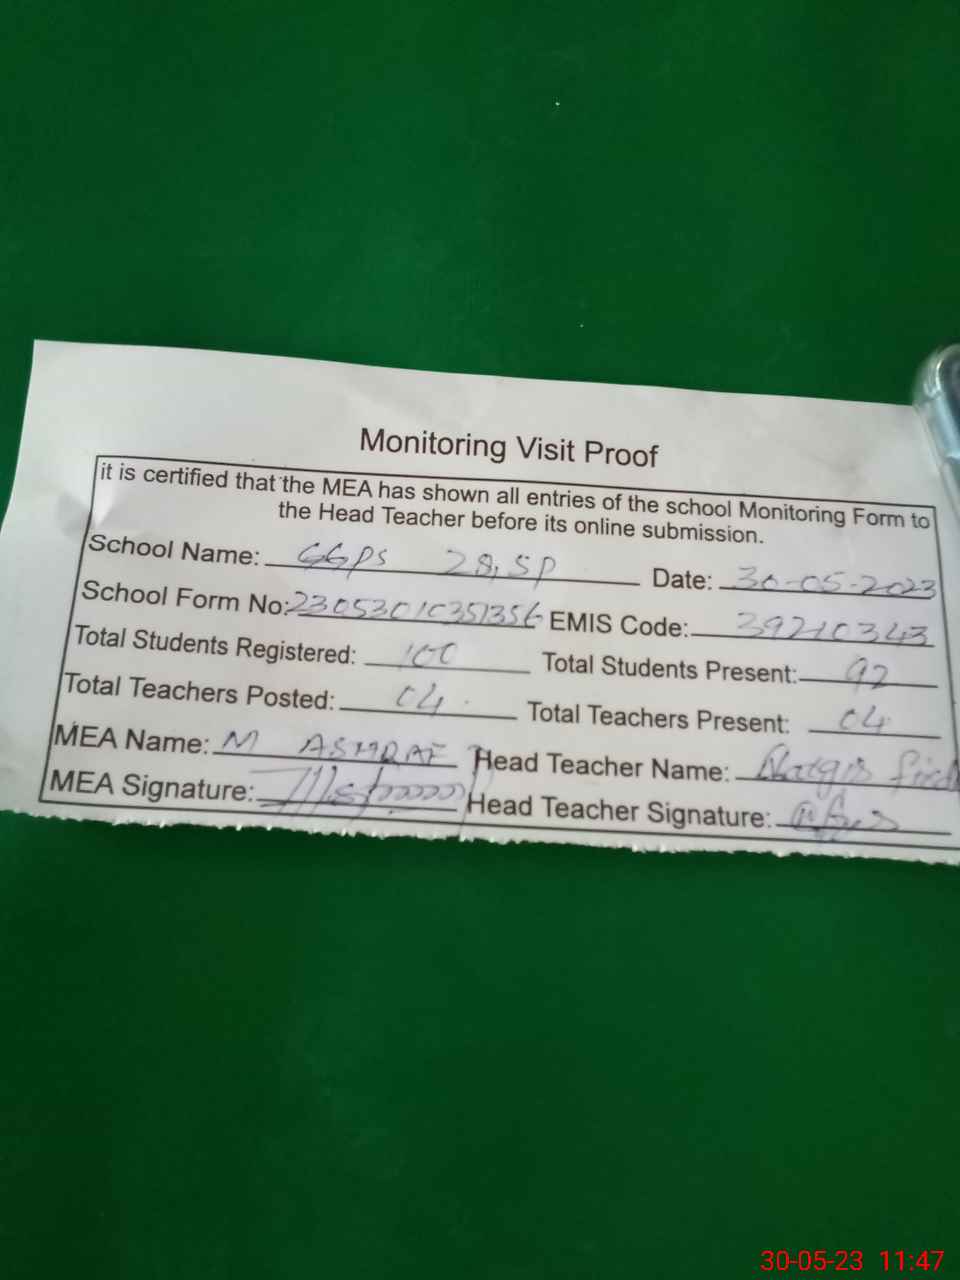 Monitoring Visit Proof
it is certified that the MEA has shown all entries of the school Monitoring Form to
the Head Teacher before its online submission.
School Name: GGPS 28, SP Date: 30-05-2023
School Form No: 23053010351356 EMIS Code: 39210343
Total Students Registered: 100 Total Students Present: 92
Total Teachers Posted: 04 Total Teachers Present: 04
MEA Name: M ASHRAF Head Teacher Name: Nargis
MEA Signature: Head Teacher Signature:
30-05-23 11:47